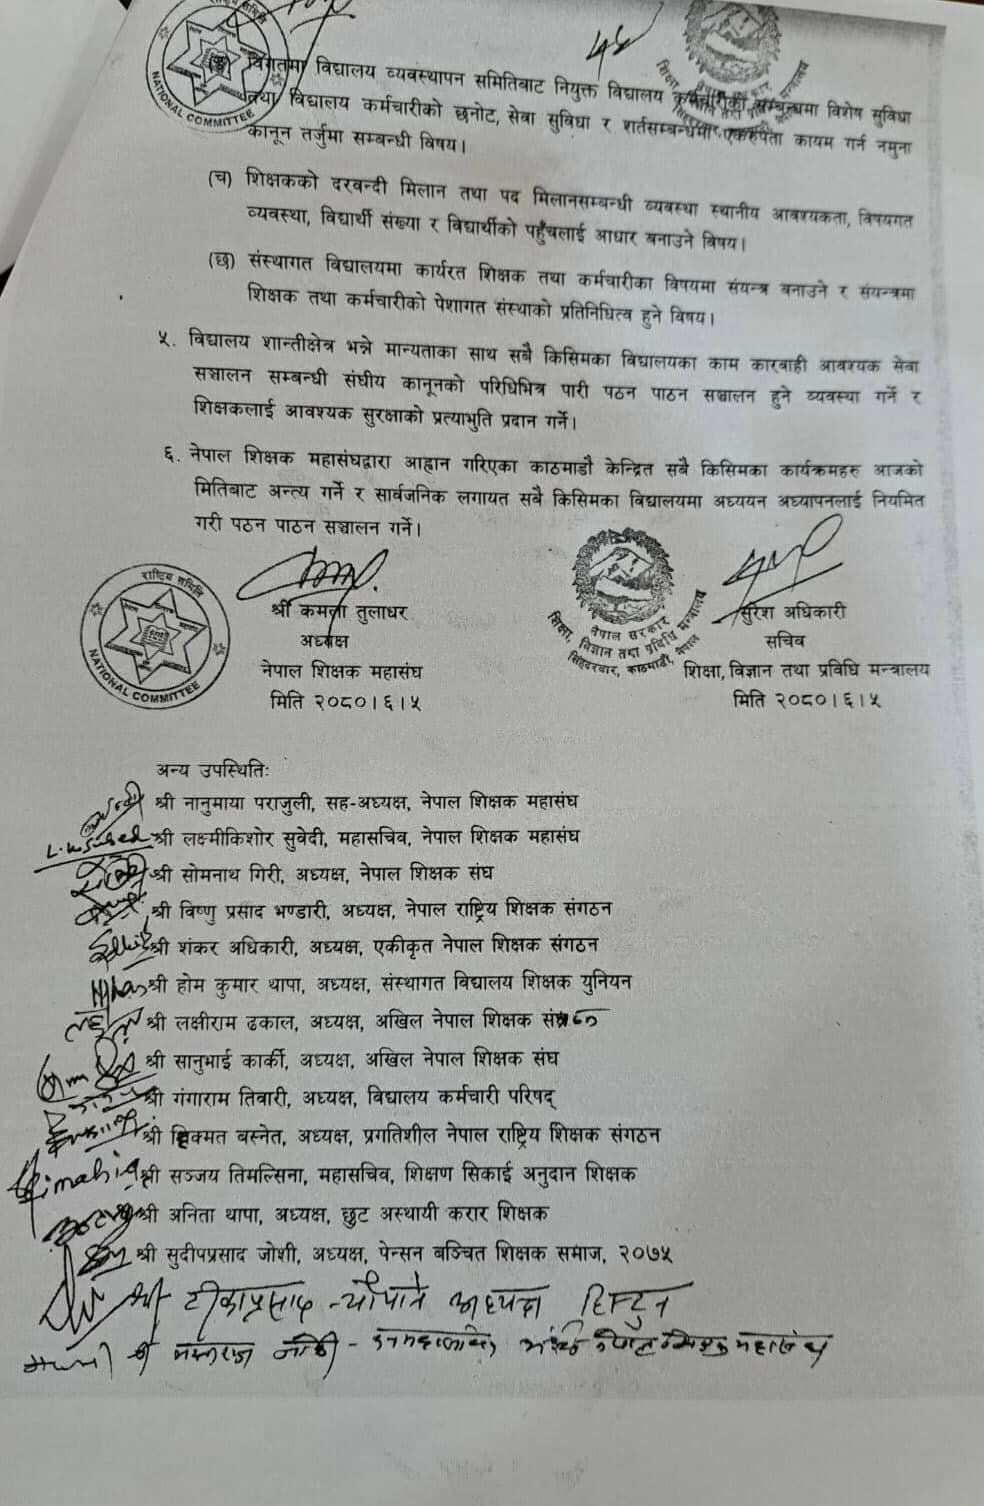 राष्ट्रिय समिति
NATIONAL COMMITTEE
विगतमा विद्यालय व्यवस्थापन समितिबाट नियुक्त विद्यालय कर्मचारीको सम्बन्धमा विशेष सुविधा
तथा विद्यालय कर्मचारीको छनोट, सेवा सुविधा र शर्तसम्बन्धमा एकरुपता कायम गर्न नमुना
कानून तर्जुमा सम्बन्धी विषय।
(च) शिक्षकको दरवन्दी मिलान तथा पद मिलानसम्बन्धी व्यवस्था स्थानीय आवश्यकता, विषयगत
व्यवस्था, विद्यार्थी संख्या र विद्यार्थीको पहुँचलाई आधार बनाउने विषय।
(छ) संस्थागत विद्यालयमा कार्यरत शिक्षक तथा कर्मचारीका विषयमा संयन्त्र बनाउने र संयन्त्रमा
शिक्षक तथा कर्मचारीको पेशागत संस्थाको प्रतिनिधित्व हुने विषय।
५. विद्यालय शान्तीक्षेत्र भन्ने मान्यताका साथ सबै किसिमका विद्यालयका काम कारवाही आवश्यक सेवा
सञ्चालन सम्बन्धी संघीय कानूनको परिधिभित्र पारी पठन पाठन सञ्चालन हुने व्यवस्था गर्ने र
शिक्षकलाई आवश्यक सुरक्षाको प्रत्याभुति प्रदान गर्ने।
६. नेपाल शिक्षक महासंघद्वारा आह्वान गरिएका काठमाडौ केन्द्रित सबै किसिमका कार्यक्रमहरु आजको
मितिबाट अन्त्य गर्ने र सार्वजनिक लगायत सबै किसिमका विद्यालयमा अध्ययन अध्यापनलाई नियमित
गरी पठन पाठन सञ्चालन गर्ने।
राष्ट्रिय समिति
NATIONAL COMMITTEE
श्री कमला तुलाधर
अध्यक्ष
नेपाल शिक्षक महासंघ
मिति २०८०।६।५
नेपाल सरकार
शिक्षा, विज्ञान तथा प्रविधि मन्त्रालय
सिंहदरबार, काठमाडौं, नेपाल
सुरेश अधिकारी
सचिव
शिक्षा, विज्ञान तथा प्रविधि मन्त्रालय
मिति २०८०।६।५
अन्य उपस्थितिः
श्री नानुमाया पराजुली, सह-अध्यक्ष, नेपाल शिक्षक महासंघ
श्री लक्ष्मीकिशोर सुवेदी, महासचिव, नेपाल शिक्षक महासंघ
श्री सोमनाथ गिरी, अध्यक्ष, नेपाल शिक्षक संघ
श्री विष्णु प्रसाद भण्डारी, अध्यक्ष, नेपाल राष्ट्रिय शिक्षक संगठन
श्री शंकर अधिकारी, अध्यक्ष, एकीकृत नेपाल शिक्षक संगठन
श्री होम कुमार थापा, अध्यक्ष, संस्थागत विद्यालय शिक्षक युनियन
श्री लक्षीराम ढकाल, अध्यक्ष, अखिल नेपाल शिक्षक
श्री सानुभाई कार्की, अध्यक्ष, अखिल नेपाल शिक्षक संघ
श्री गंगाराम तिवारी, अध्यक्ष, विद्यालय कर्मचारी परिषद्
श्री हिक्मत बस्नेत, अध्यक्ष, प्रगतिशील नेपाल राष्ट्रिय शिक्षक संगठन
श्री सञ्जय तिमल्सिना, महासचिव, शिक्षण सिकाई अनुदान शिक्षक
श्री अनिता थापा, अध्यक्ष, छुट अस्थायी करार शिक्षक
श्री सुदीपप्रसाद जोशी, अध्यक्ष, पेन्सन बञ्चित शिक्षक समाज, २०७५
श्री टीकाप्रसाद न्यौपाने अध्यक्ष
श्री जोशी - नेपाल शिक्षक महासंघ